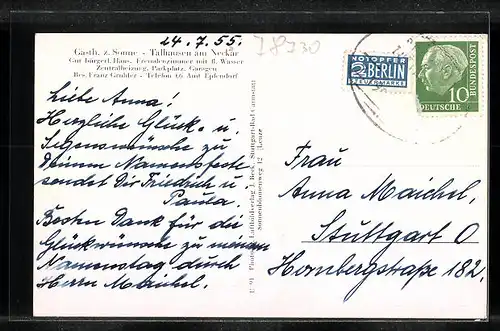 24.7.55.
I8J30
Gasth. z. Sonne - Talhausen am Neckar
Gut bürgerl. Haus. Fremdenzimmer mit fl. Wasser
Zentralheizung, Parkplatz, Garagen
Bes. Franz Grathler - Telefon 46 Amt Epfendorf
Liebe Anna!
Herzliche Glück- u.
Segenswünsche zu
Deinem Namensfeste
sendet Dir Friedrich u
Paula.
Besten Dank für die
Glückwünsche zu meinem
Namenstag durch
Herrn Maichel.
Luftbildverlag J. Beck, Stuttgart-Bad Cannstatt
Sonnenblumenweg 12
NOTOPFER
2 BERLIN
STEUERMARKE
10
DEUTSCHE
BUNDESPOST
Frau
Anna Maichel,
Stuttgart O
Hornbergstraße 182.